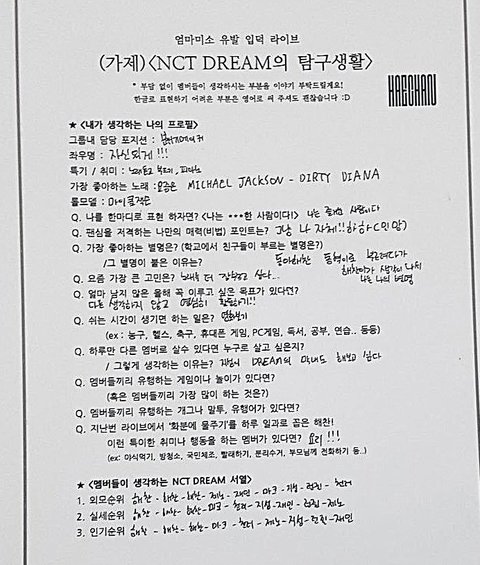 엄마미소 유발 입덕 라이브
(가제)<NCT DREAM의 탐구생활>
* 부담 없이 멤버들이 생각하시는 부분을 이야기 부탁드릴게요!
한글로 표현하기 어려운 부분은 영어로 써 주셔도 괜찮습니다 :D
HAECHAN
★ <내가 생각하는 나의 프로필>
그룹내 담당 포지션 : 분위기메이커
좌우명 : 자신있게 !!!
특기 / 취미 : 노래듣고 부르기, 피아노
가장 좋아하는 노래 : 요즘은 MICHAEL JACKSON - DIRTY DIANA
롤모델 : 마이클잭슨
Q. 나를 한마디로 표현 하자면? <나는 ***한 사람이다!> 나는 즐거운 사람이다
Q. 팬심을 저격하는 나만의 매력(비법) 포인트는? 그냥 나 자체!! 하하(민망)
Q. 가장 좋아하는 별명은? (학교에서 친구들이 부르는 별명은?)
/그 별명이 붙은 이유는?
Q. 요즘 가장 큰 고민은? 노래를 더 잘하고 싶다...
Q. 얼마 남지 않은 올해 꼭 이루고 싶은 목표가 있다면?
다른 생각하지 않고 열심히 활동하기!!
Q. 쉬는 시간이 생기면 하는 일은? 영화보기
(ex : 농구, 헬스, 축구, 휴대폰 게임, PC게임, 독서, 공부, 연습.. 등등)
Q. 하루만 다른 멤버로 살수 있다면 누구로 살고 싶은지?
/ 그렇게 생각하는 이유는? DREAM의 막내도 해보고 싶다
Q. 멤버들끼리 유행하는 게임이나 놀이가 있다면?
(혹은 멤버들끼리 가장 많이 하는 것은?)
Q. 멤버들끼리 유행하는 개그나 말투, 유행어가 있다면?
Q. 지난번 라이브에서 '화분에 물주기'를 하루 일과로 꼽은 해찬!
이런 특이한 취미나 행동을 하는 멤버가 있다면? 요리 !!!
(ex: 야식먹기, 방청소, 국민체조, 빨래하기, 분리수거, 부모님께 전화하기 등..)
★ <멤버들이 생각하는 NCT DREAM 서열>
1. 외모순위 해찬 - 해찬 - 해찬 - 제노 - 재민 - 마크 - 지성 - 런쥔 - 천러
2. 실세순위 해찬 - 해찬 - 해찬 - 마크 - 천러 - 지성 - 재민 - 런쥔 - 제노
3. 인기순위 해찬 - 해찬 - 해찬 - 마크 - 천러 - 제노 - 지성 - 런쥔 - 재민